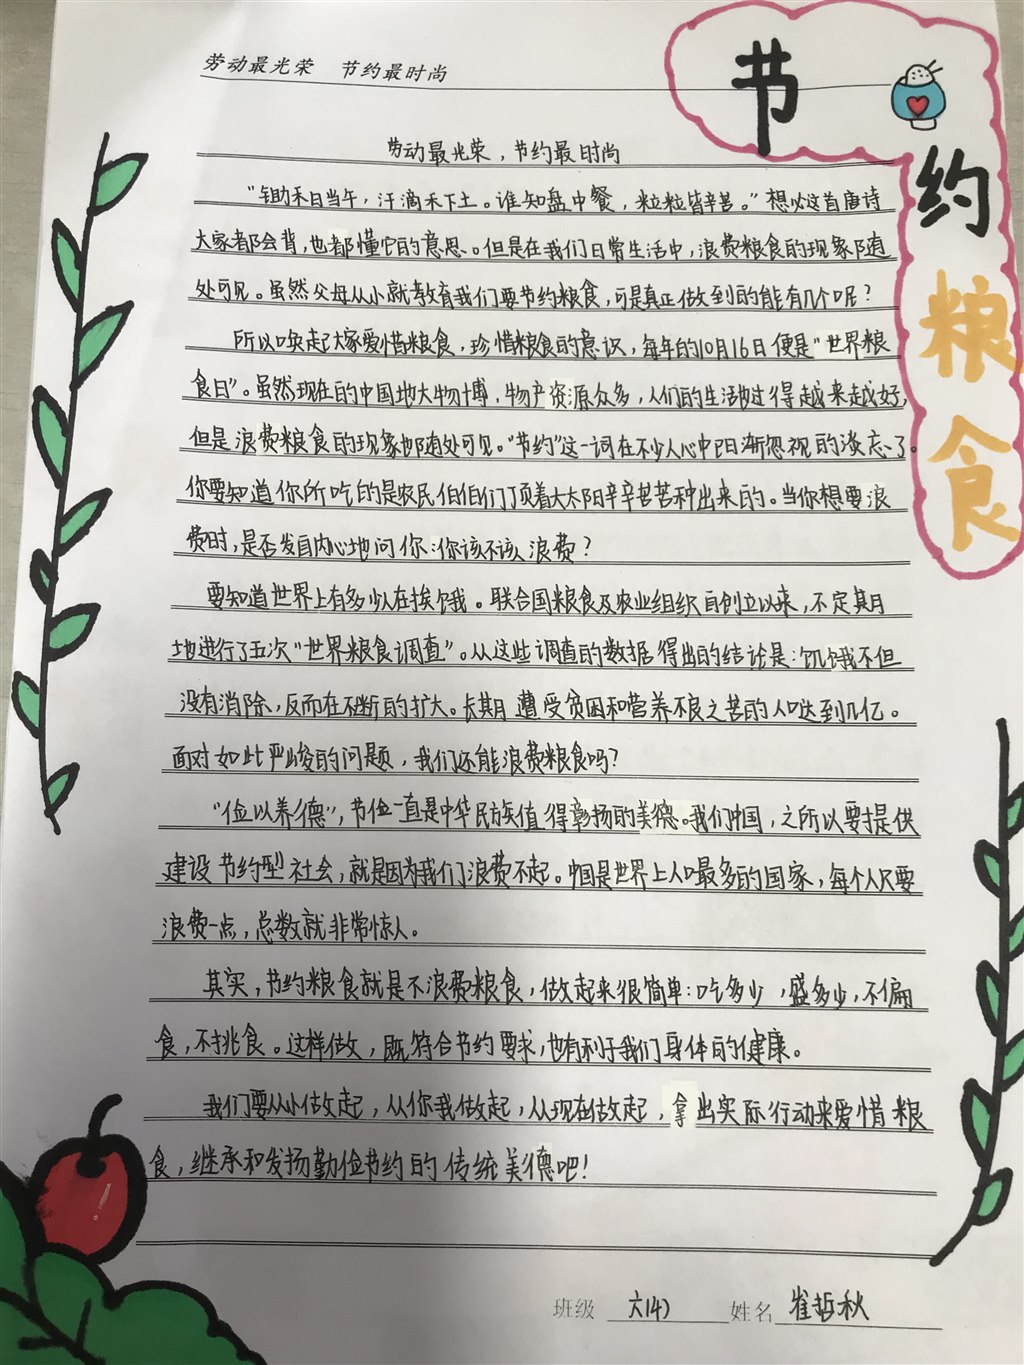 劳动最光荣 节约最时尚
节约粮食
劳动最光荣，节约最时尚
“锄禾日当午，汗滴禾下土。谁知盘中餐，粒粒皆辛苦。”想必这首唐诗
大家都会背，也都懂它的意思。但是在我们日常生活中，浪费粮食的现象随
处可见。虽然父母从小就教育我们要节约粮食，可是真正做到的能有几个呢？
所以唤起大家爱惜粮食，珍惜粮食的意识，每年的10月16日便是“世界粮
食日”。虽然现在的中国地大物博，物产资源众多，人们的生活也过得越来越好，
但是浪费粮食的现象却随处可见。“节约”这一词在不少人心中日渐忽视的淡忘了。
你要知道你所吃的是农民伯伯们顶着大太阳辛辛苦苦种出来的。当你想要浪
费时，是否发自内心地问你：你该不该浪费？
要知道世界上有多少人在挨饿。联合国粮食及农业组织自创立以来，不定期
地进行了五次“世界粮食调查”。从这些调查的数据得出的结论是：饥饿不但
没有消除，反而在不断的扩大。长期遭受贫困和营养不良之苦的人口达到几亿。
面对如此严峻的问题，我们还能浪费粮食吗？
“俭以养德”，节俭一直是中华民族值得彰扬的美德。我们中国，之所以要提供
建设节约型社会，就是因为我们浪费不起。中国是世界上人口最多的国家，每个人只要
浪费一点，总数就非常惊人。
其实，节约粮食就是不浪费粮食，做起来很简单：吃多少，盛多少，不偏
食，不挑食。这样做，既符合节约要求，也有利于我们身体的健康。
我们要从小做起，从你我做起，从现在做起，拿出实际行动来爱惜粮
食，继承和发扬勤俭节约的传统美德吧！
班级 六(4) 姓名 崔哲秋